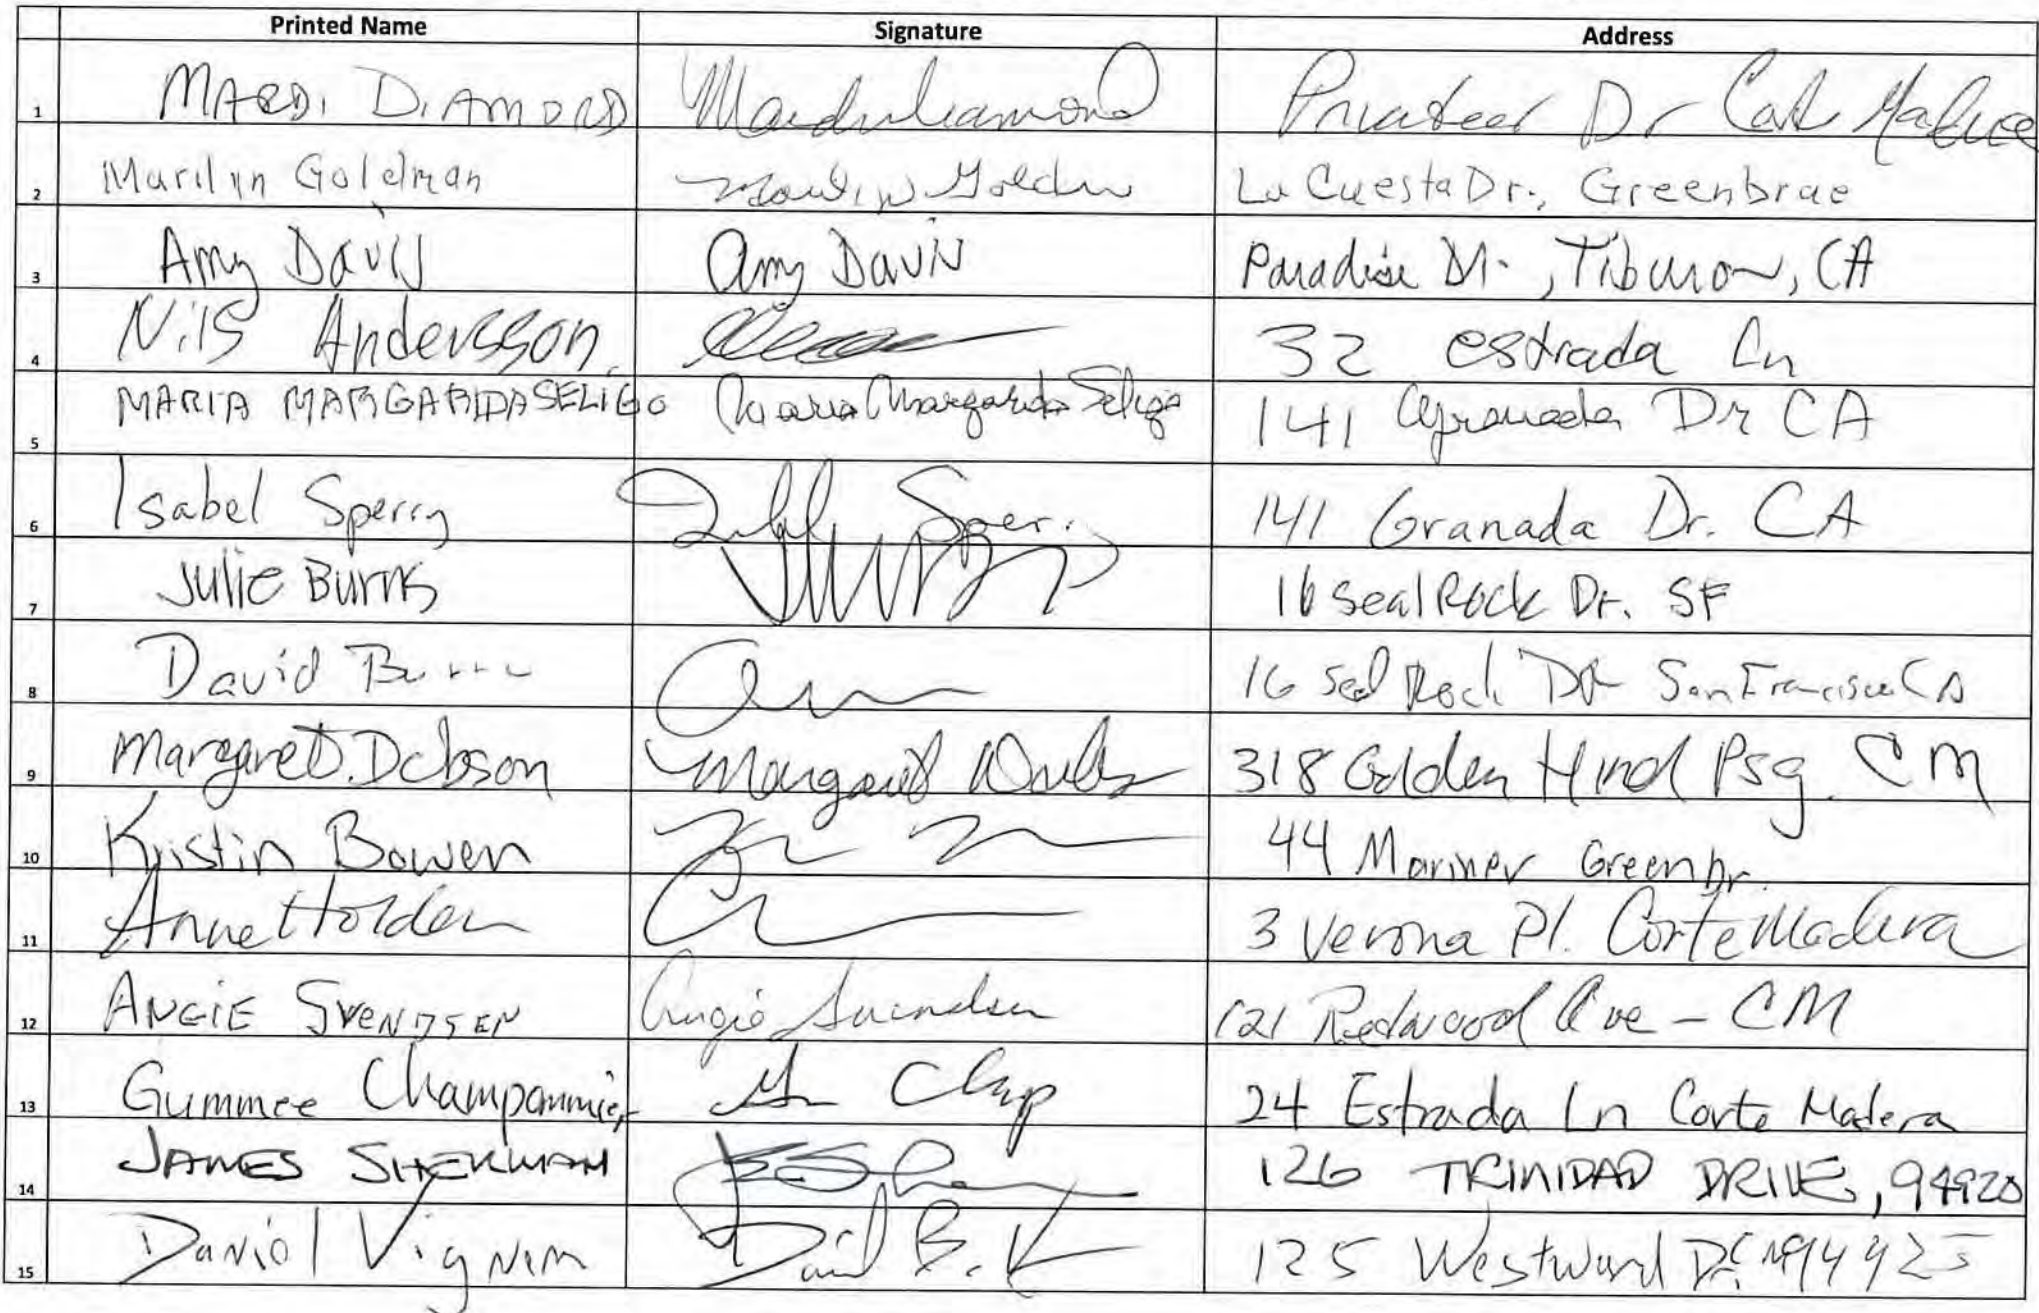 Printed Name Signature Address
1 MARDI DIAMOND Mardi Diamond Privateer Dr Corte Madera
2 Marilyn Goldman Marilyn Goldman La Cuesta Dr., Greenbrae
3 Amy Davis Amy Davis Paradise Dr., Tiburon, CA
4 Nils Andersson 32 estrada Ln
5 MARIA MARGARIDA SELIGO Maria Margarida Seligo 141 Granada Dr CA
6 Isabel Sperry Sperry 141 Granada Dr. CA
7 Julie Burns 16 Seal Rock Dr. SF
8 David 16 Seal Rock DR San Francisco CA
9 Margaret Dobson Margaret 318 Golden Hind Psg. CM
10 Kristin Bowen 44 Mariner Green Dr.
11 Anne Holden 3 Verona Pl. Corte Madera
12 ANGIE SVENDSEN Angie Svendsen 121 Redwood Ave - CM
13 Gummee Champommier 24 Estrada Ln Corte Madera
14 JAMES SHERMAN 126 TRINIDAD DRIVE, 94920
15 Daniel 125 Westward Dr 94925